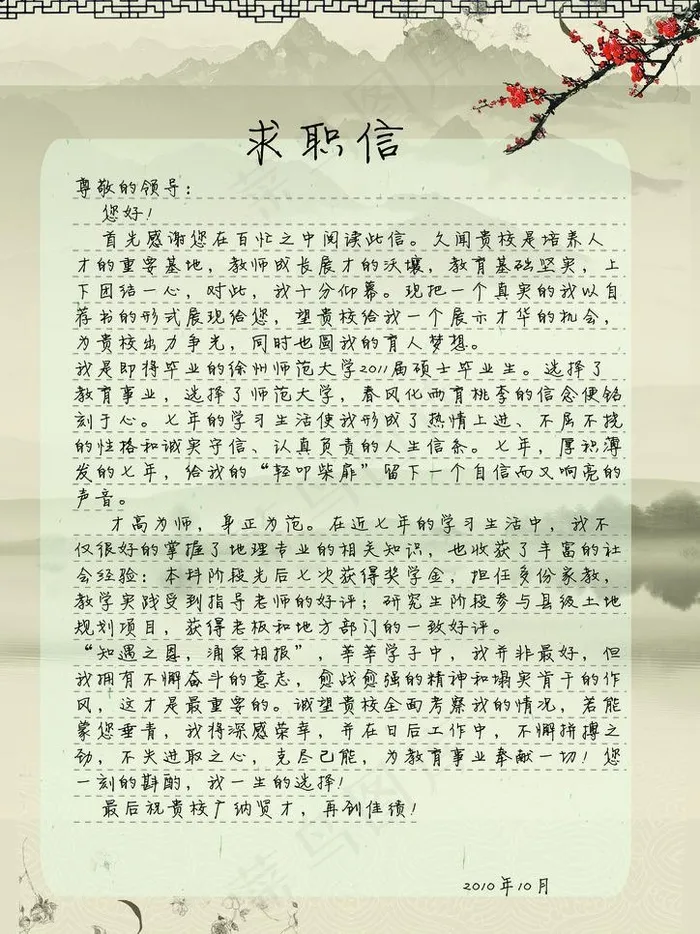 求职信
尊敬的领导：
您好！
首先感谢您在百忙之中阅读此信。久闻贵校是培养人
才的重要基地，教师成长展才的沃壤，教育基础坚实，上
下团结一心，对此，我十分仰幕。现把一个真实的我以自
荐书的形式展现给您，望贵校给我一个展示才华的机会，
为贵校出力争光，同时也圆我的育人梦想。
我是即将毕业的徐州师范大学2011届硕士毕业生。选择了
教育事业，选择了师范大学，春风化雨育桃李的信念便铭
刻于心。七年的学习生活使我形成了热情上进、不屈不挠
的性格和诚实守信、认真负责的人生信条。七年，厚积薄
发的七年，给我的“轻叩柴扉”留下一个自信而又响亮的
声音。
才高为师，身正为范。在近七年的学习生活中，我不
仅很好的掌握了地理专业的相关知识，也收获了丰富的社
会经验：本科阶段先后七次获得奖学金，担任多份家教，
教学实践受到指导老师的好评；研究生阶段参与县级土地
规划项目，获得老板和地方部门的一致好评。
“知遇之恩，涌泉相报”，莘莘学子中，我并非最好，但
我拥有不懈奋斗的意志，愈战愈强的精神和塌实肯干的作
风，这才是最重要的。诚望贵校全面考察我的情况，若能
蒙您垂青，我将深感荣幸，并在日后工作中，不懈拼搏之
劲，不失进取之心，克尽己能，为教育事业奉献一切！您
一刻的斟酌，我一生的选择！
最后祝贵校广纳贤才，再创佳绩！
2010年10月